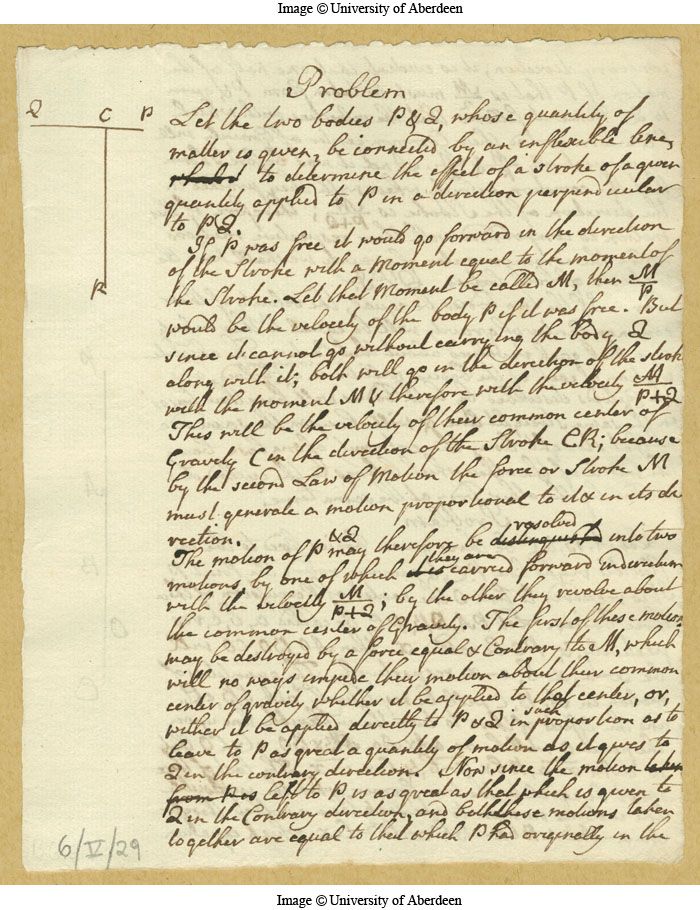 Image © University of Aberdeen
Problem
Q C P
R
Let the two bodies P & Q, whose quantity of
matter is given, be connected by an inflexible line,
to determine the effect of a stroke of a given
quantity applied to P in a direction perpendicular
to PQ.
If P was free it would go forward in the direction
of the Stroke with a Moment equal to the moment of
the Stroke. Let that Moment be called M, then M/P
would be the velocity of the body P if it was free. But
since it cannot go without carrying the body Q
along with it; both will go in the direction of the stroke
with the Moment M & therefore with the velocity M/P+Q
This will be the velocity of their common center of
Gravity C in the direction of the Stroke CR; because
by the second Law of Motion the force or Stroke M
must generate a motion proportional to it & in its di
rection.
The motion of P & Q may therefore be distinguished resolved into two
motions, by one of which they are carried forward in direction
with the velocity M/P+Q; by the other they revolve about
the common center of Gravity. The first of these motions
may be destroyed by a force equal & Contrary to M, which
will no ways impede their motion about their common
center of gravity whether it be applied to that center, or,
wither it be applied directly to P & Q in such proportion as to
leave to P as great a quantity of motion as it gives to
Q in the contrary direction. Now since the motion taken
from P is left to P is as great as that which is given to
Q in the Contrary direction, and both these motions taken
together are equal to that which P had originally in the
6/V/29
Image © University of Aberdeen